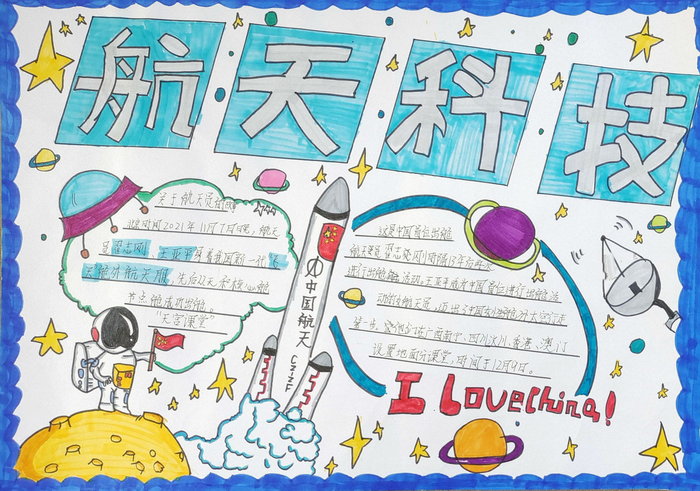 航天科技
关于航天员出舱
北京时间2021年11月7日晚，航天
员翟志刚、王亚平身着我国新一代"飞
天"舱外航天服，先后从天和核心舱
节点舱成功出舱
"天宫课堂"
中国航天
CZ-2F
这是中国首位出舱
航天员翟志刚时隔13年后再次
进行出舱活动，王亚平成为中国首位进行出舱活
动的女航天员，迈出了中国女性舱外太空行走
第一步。
广西南宁、四川汶川、香港、澳门
设置地面分课堂。时间于12月9日。
I Love China!